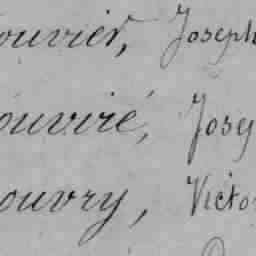 ouvier, Joseph
ouviré, Josep
ouvry, Victo